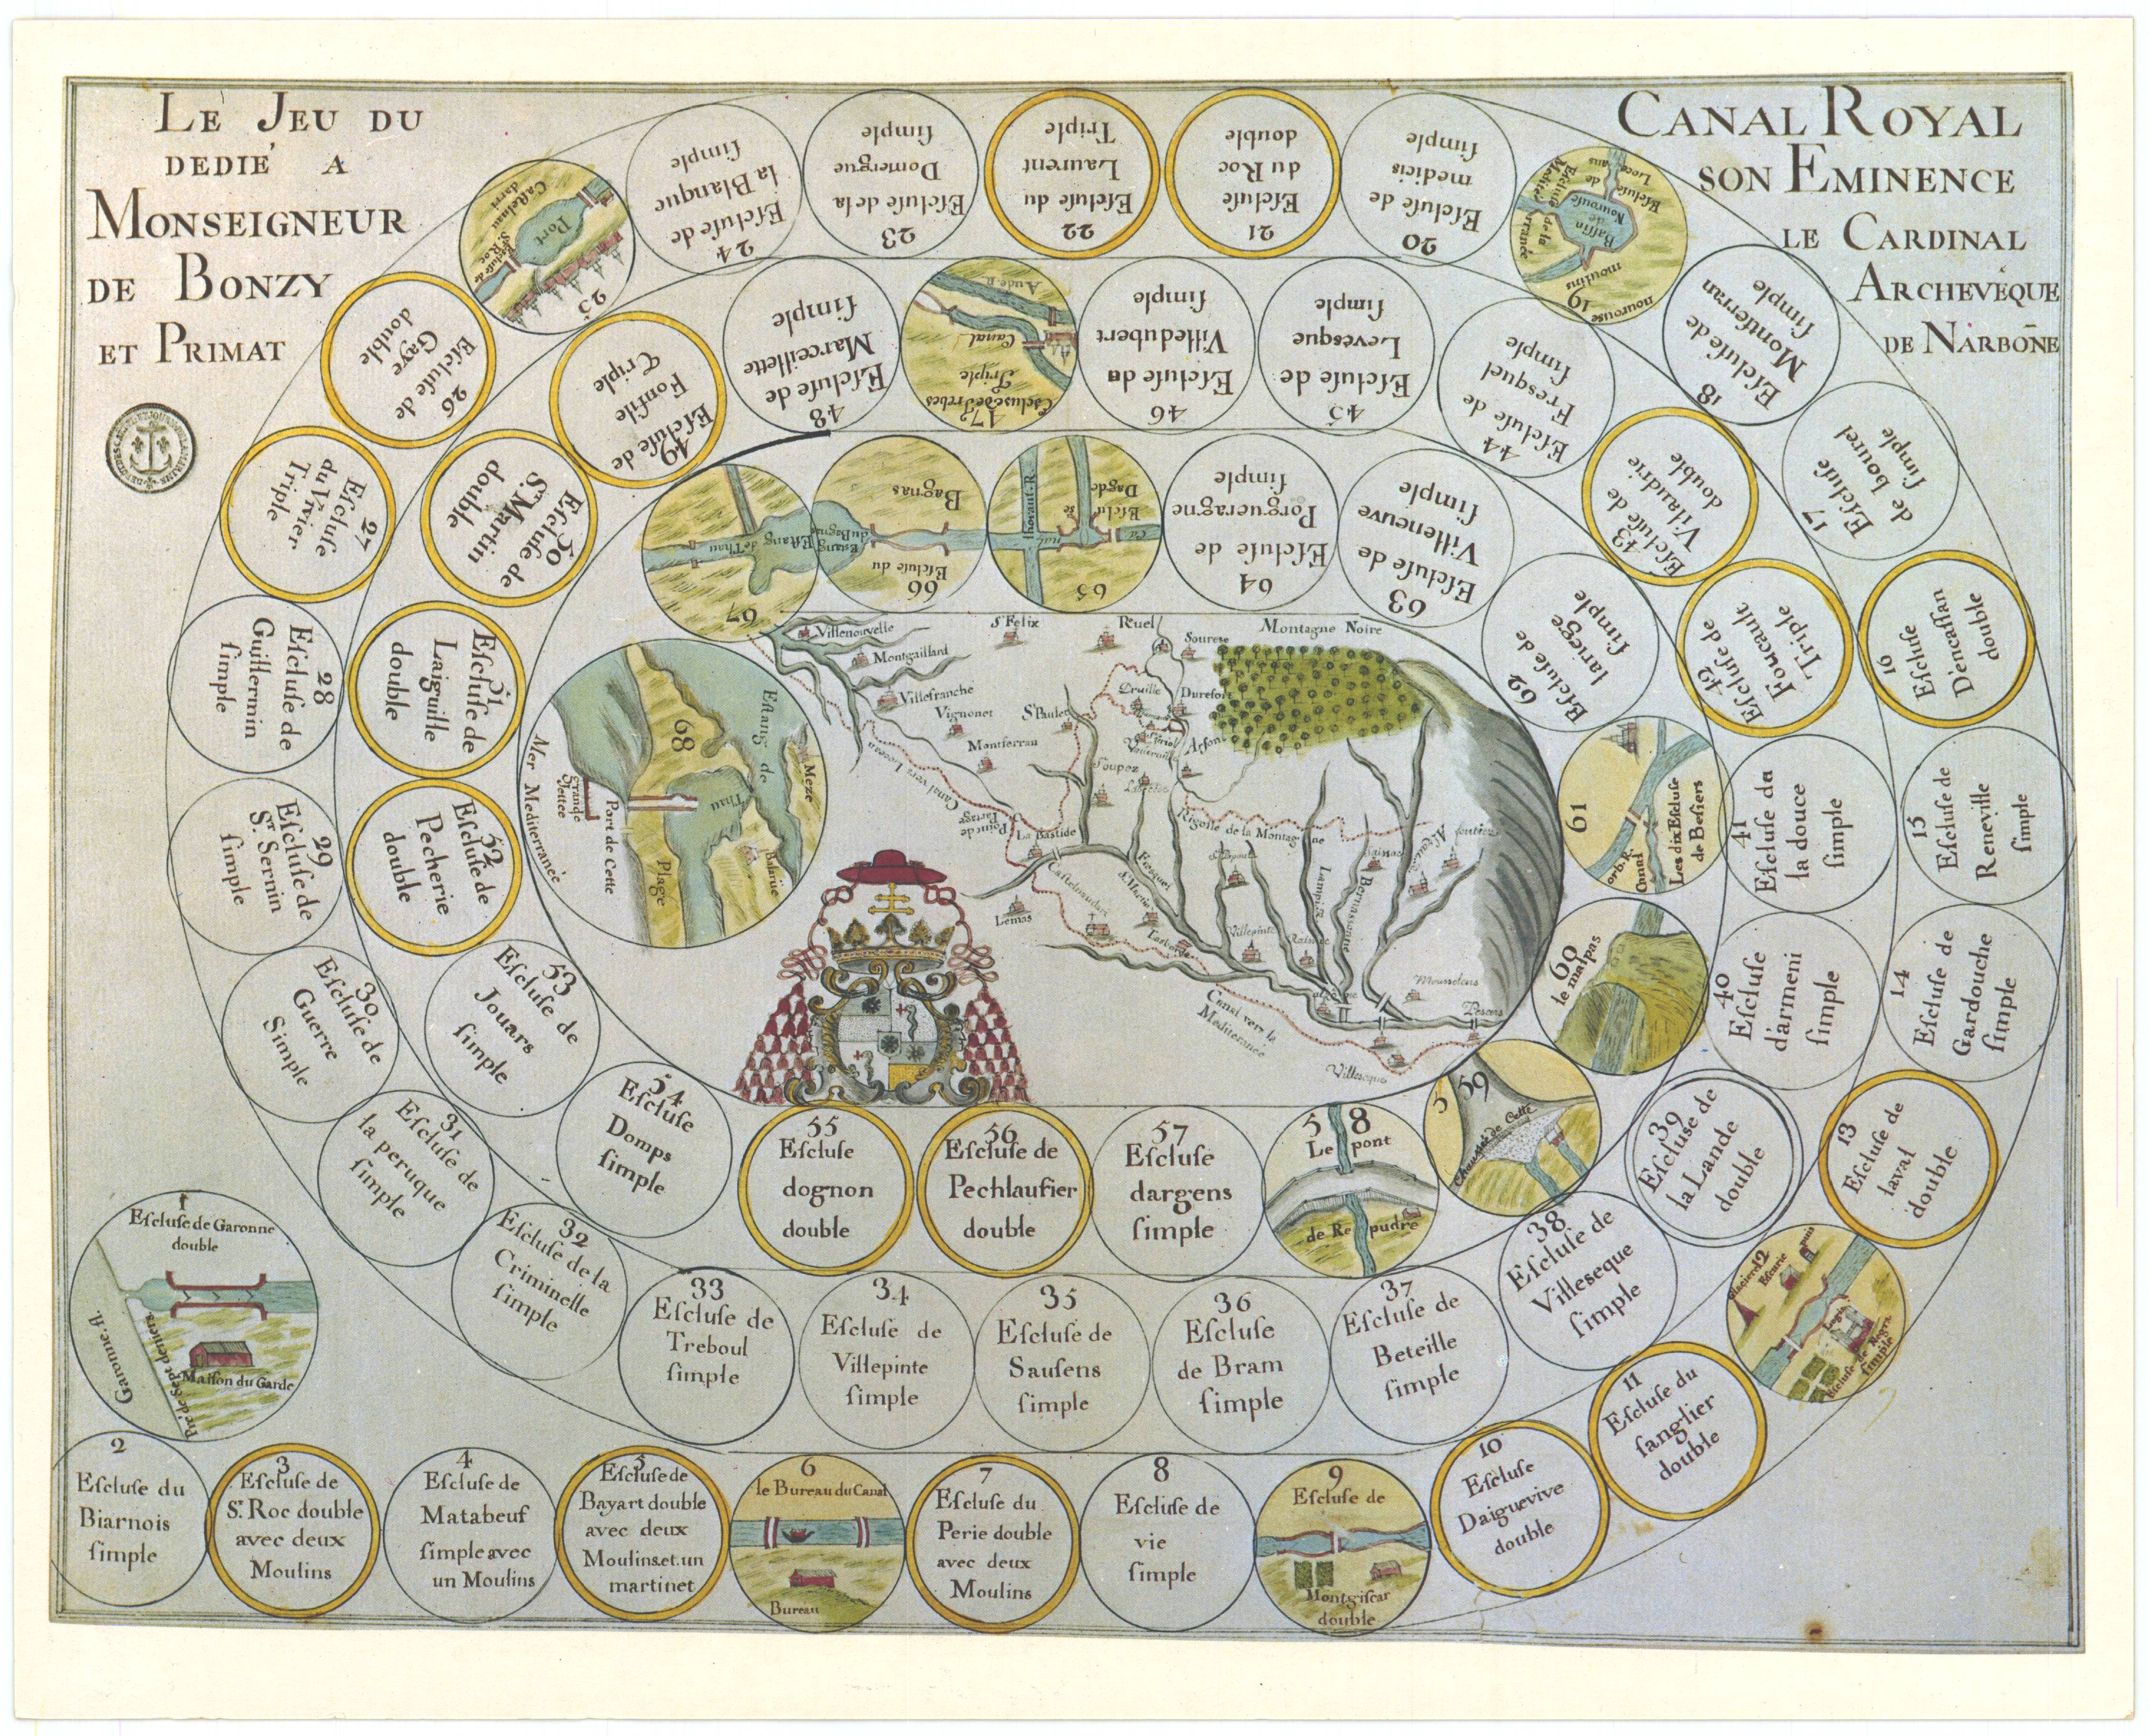 LE JEU DU
DEDIE' A
MONSEIGNEUR
DE BONZY
ET PRIMAT
CANAL ROYAL
SON EMINENCE
LE CARDINAL
ARCHEVÉQUE
DE NARBOÑE
1
Eſcluſe de Garonne
double
Garonne. fl.
Maiſon du Garde
2
Eſcluſe du
Biarnois
ſimple
3
Eſcluſe de
St. Roc double
avec deux
Moulins
4
Eſcluſe de
Matabeuf
ſimple avec
un Moulins
5
Eſcluſe de
Bayart double
avec deux
Moulins.et.un
martinet
6
le Bureau du Canal
Bureau
7
Eſcluſe du
Perie double
avec deux
Moulins
8
Eſcluſe de
vie
ſimple
9
Eſcluſe de
Montgiſcar
double
10
Eſcluſe
Daiguevive
double
11
Eſcluſe du
ſanglier
double
12
Eſcurie
Logis
Eſcluſe de Negra
ſimple
13
Eſcluſe de
laval
double
14
Eſcluſe de
Gardouche
ſimple
15
Eſcluſe de
Reneville
ſimple
16
Eſcluſe
Dencaſſan
double
17
Eſcluſe
de bourel
ſimple
18
Eſcluſe de
Montferran
ſimple
19
nourouse
moulins
Baſſin
de
Nourouſe
20
Eſcluſe de
medicis
ſimple
21
Eſcluſe
du Roc
double
22
Eſcluſe du
Laurent
Triple
23
Eſcluſe de la
Domergue
ſimple
24
Eſcluſe de
la Blanque
ſimple
25
Eſcluſe de
St. Roc
Port
Caſtelnau
darri
26
Eſcluſe de
Gaye
double
27
Eſcluſe
du Vivier
Triple
28
Eſcluſe de
Guillermin
ſimple
29
Eſcluſe de
St. Sernin
ſimple
30
Eſcluſe de
Guerre
Simple
31
Eſcluſe de
la peruque
ſimple
32
Eſcluſe de la
Criminelle
ſimple
33
Eſcluſe de
Treboul
ſimple
34
Eſcluſe de
Villepinte
ſimple
35
Eſcluſe de
Sauſens
ſimple
36
Eſcluſe
de Bram
ſimple
37
Eſcluſe de
Beteille
ſimple
38
Eſcluſe de
Villeseque
ſimple
39
Eſcluſe de
la Lande
double
40
Eſcluſe
d'armeni
ſimple
41
Eſcluſe da
la douce
ſimple
42
Eſcluſe de
Foucault
Triple
43
Eſcluſe de
Vilaudrie
double
44
Eſcluſe de
Freſquel
ſimple
45
Eſcluſe de
Leveſque
ſimple
46
Eſcluſe da
Villedubert
ſimple
47
Esclusedetrebes
Triple
Canal
Aude. R.
48
Eſcluſe de
Marceillette
ſimple
49
Eſcluſe de
Fonſile
Triple
50
Eſcluſe de
St. Martin
double
51
Eſcluſe de
Laiguille
double
52
Eſcluſe de
Pecherie
double
53
Eſcluſe de
Jouars
ſimple
54
Eſcluſe
Domps
ſimple
55
Eſcluſe
dognon
double
56
Eſcluſe de
Pechlauſier
double
57
Eſcluſe
dargens
ſimple
58
Le pont
de Repudre
59
Chaussée de Cette
60
le malpas
61
Les dix Eſcluſe
de Beſiers
Canal
orb. R.
62
Eſcluſe de
lariege
ſimple
63
Eſcluſe de
Villeneuve
ſimple
64
Eſcluſe de
Porgueragne
ſimple
65
Eſcluſe
Dagde
66
Eſcluſe du
Bagnas
67
Eſtang de Thau
Eſtang
du Bagnas
68
Eſtang de
Thau
Meze
Balarüc
Plage
Port de Cette
Grande
Jettée
Mer Mediterranée
Villenouvelle
Montgaillard
Villefranche
Vignonet
Montferran
St. Felix
Ruel
Sourese
Montagne Noire
Durefort
St. Paulet
Arfons
Soupex
Canal vers Locean
Point de
Partage
La Bastide
Rigolle de la Montagne
Caſtelnaudari
Lemas
Freſquel
Lasborde
Villepinte
Lampi. R.
Bernassonne
Alzau
Mousselens
Pesens
Canal vers la
Mediterranée
Villeseque